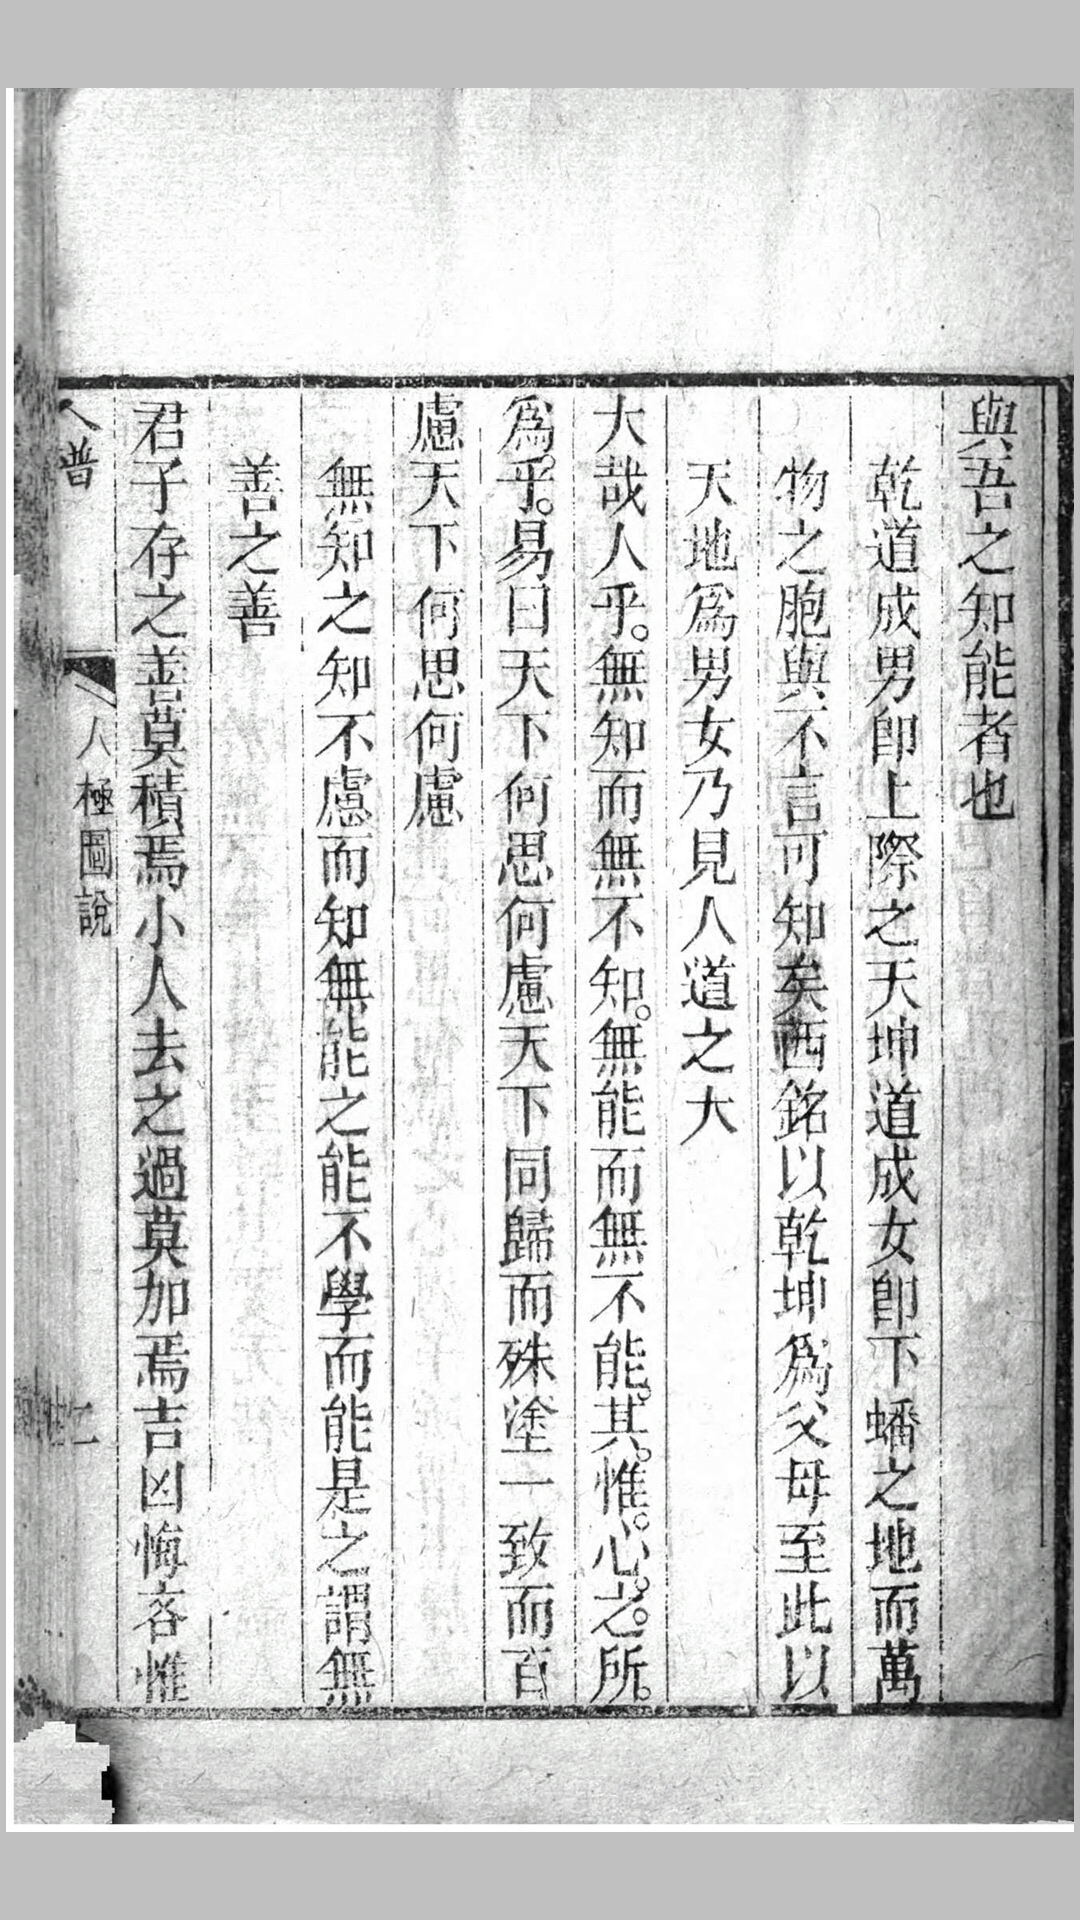 與吾之知能者也
乾道成男卽上際之天坤道成女卽下蟠之地而萬
物之胞與不言可知矣西銘以乾坤爲父母至此以
天地爲男女乃見人道之大
大哉人乎。無知而無不知。無能而無不能。其。惟。心。之。所。
爲。乎。易曰天下何思何慮天下同歸而殊塗一致而百
慮天下何思何慮
無知之知不慮而知無能之能不學而能是之謂無
善之善
君子存之善莫積焉小人去之過莫加焉吉凶悔吝惟
人譜
人極圖說
二